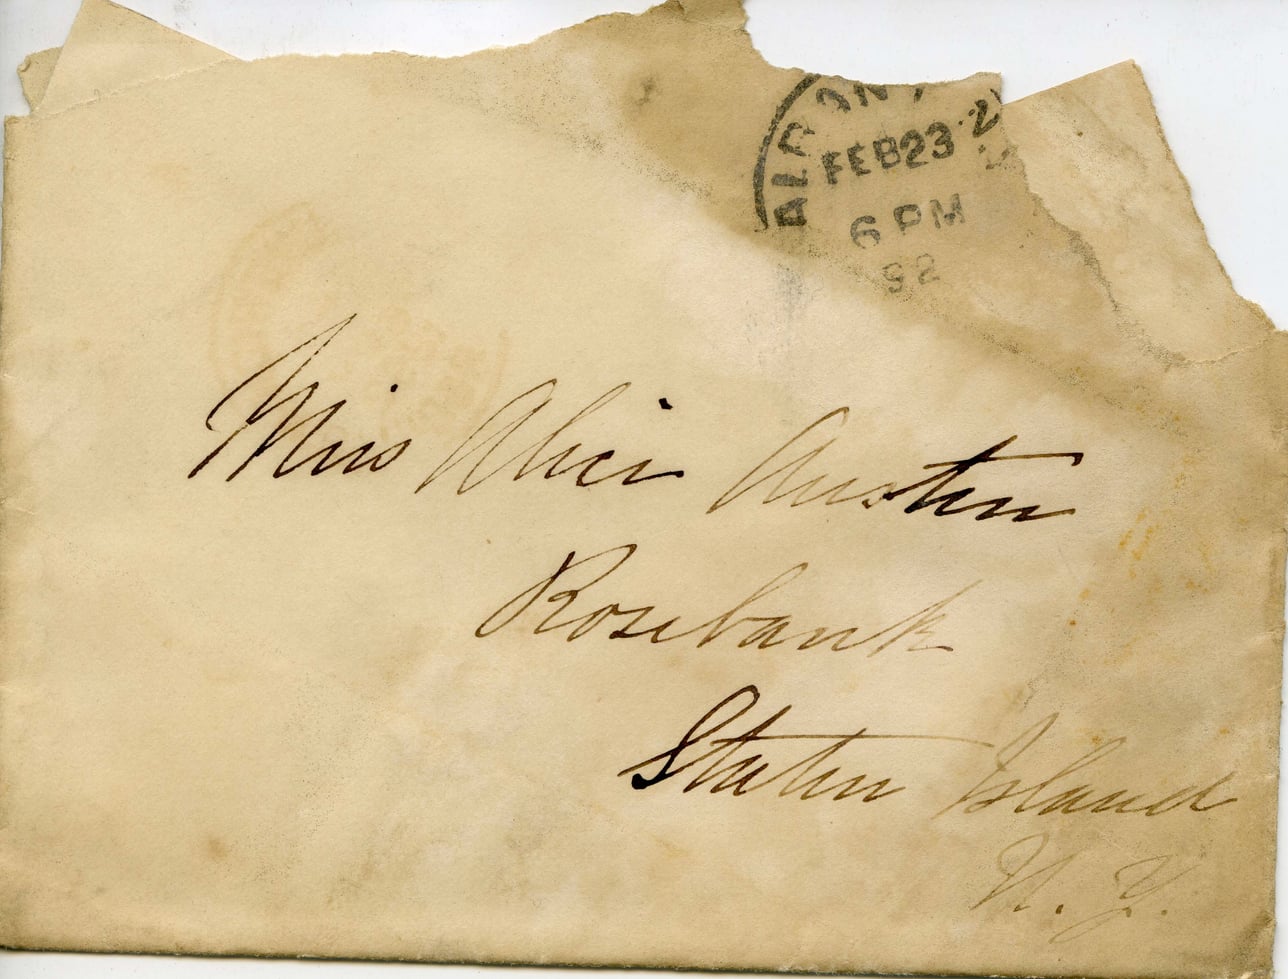 ALBANY
FEB 23
6 PM
92
Miss Alice Austen
Rosebank
Staten Island
N. Y.